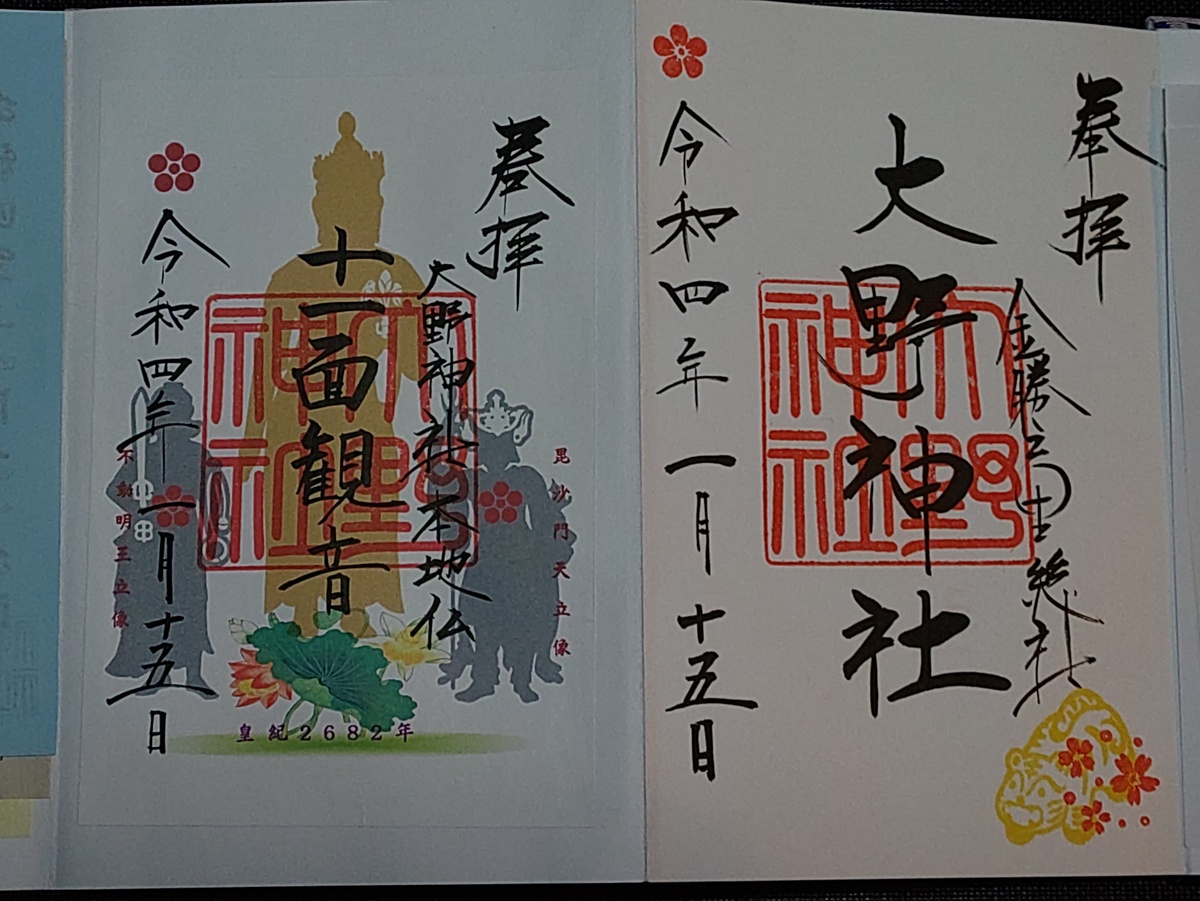 奉拝
金勝寺由緒社
大野神社
大野神社
令和四年一月十五日
奉拝
大野神社本地仏
十一面観音
大野神社
令和四年一月十五日
毘沙門天立像
不動明王立像
皇紀2682年